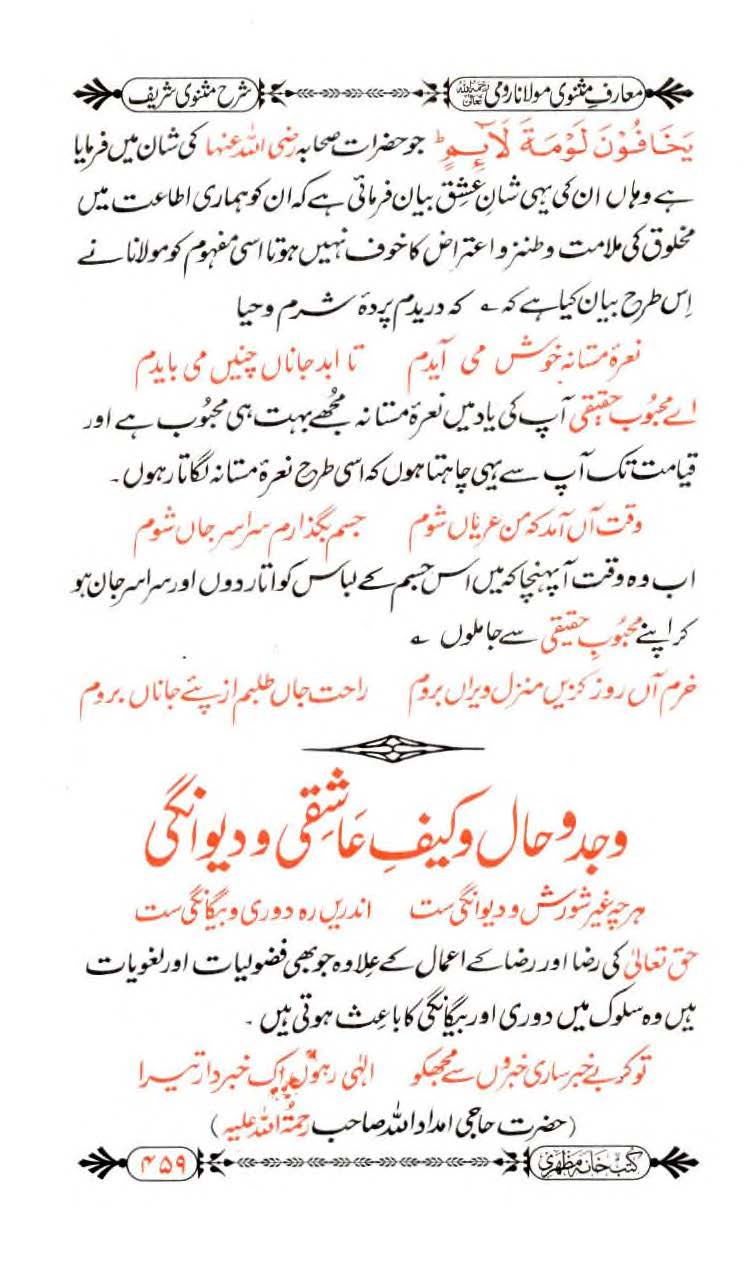 معارفِ مثنوی مولانا رومی رحمۃ اللہ تعالیٰ شرح مثنوی شریف
یَخَافُوْنَ لَوْمَۃَ لَآئِمٍ ؕ جو حضرات صحابہ رضی اللہ عنہا کی شان میں فرمایا
ہے وہاں ان کی یہی شانِ عشق بیان فرمائی ہے کہ ان کو ہماری اطاعت میں
مخلوق کی ملامت و طنز و اعتراض کا خوف نہیں ہوتا اسی مفہوم کو مولانا نے
اِس طرح بیان کیا ہے کہ ؎ کہ دریدم پردۂ شرم و حیا
نعرۂ مستانہ خوش می آیدم تا ابد جاناں چنیں می بایدم
اے محبوبِ حقیقی آپ کی یاد میں نعرۂ مستانہ مجھے بہت ہی محبُوب ہے اور
قیامت تک آپ سے یہی چاہتا ہوں کہ اسی طرح نعرۂ مستانہ لگاتا رہوں۔
وقت آں آمد کہ من عریاں شوم جسم بگذارم سراسر جاں شوم
اب وہ وقت آپہنچا کہ میں اس جسم کے لباس کو اتار دوں اور سراسر جان ہو
کر اپنے محبُوبِ حقیقی سے جا ملوں ؎
خرم آں روز کزیں منزل ویراں بروم راحت جاں طلبم از پئے جاناں بروم
وجد و حال و کیفِ عَاشِقی و دیوانگی
ہرچہ غیر شورش و دیوانگی ست اندریں رہ دوری و بیگانگی ست
حق تعالیٰ کی رضا اور رضا کے اعمال کے عِلاوہ جو بھی فضولیات اور لغویات
ہیں وہ سلوک میں دوری اور بیگانگی کا باعِث ہوتی ہیں ۔
تو کر بے خبر ساری خبروں سے مجھکو الٰہی رہوں اِک خبردار تیرا
(حضرت حاجی امداد اللہ صاحب رحمۃُ اللہ علیہ)
کتب خانہ مظہری ۴۵۹